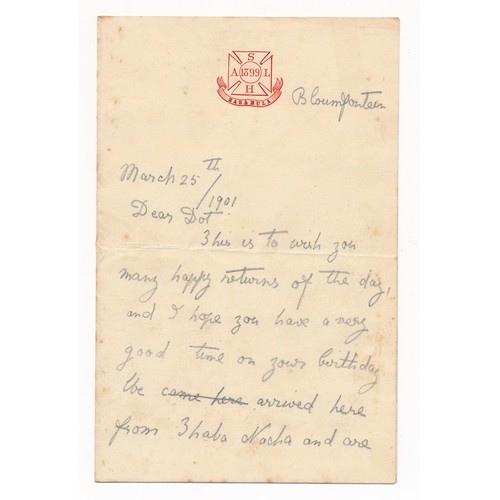 S
A 1899 L
H
Bloemfontein
March 25th
/1901
Dear Dot
This is to wish you
many happy returns of the day,
and I hope you have a very
good time on your birthday
We came here arrived here
from Thaba Nacha and are